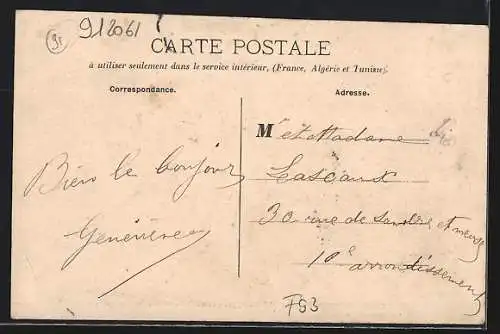 91
912061
CARTE POSTALE
à utiliser seulement dans le service intérieur, (France, Algérie et Tunisie).
Correspondance.
Adresse.
M r et Madame
Lascaux
30 rue de
10e arrondissement
Bien le bonjour
Geneviève
F53